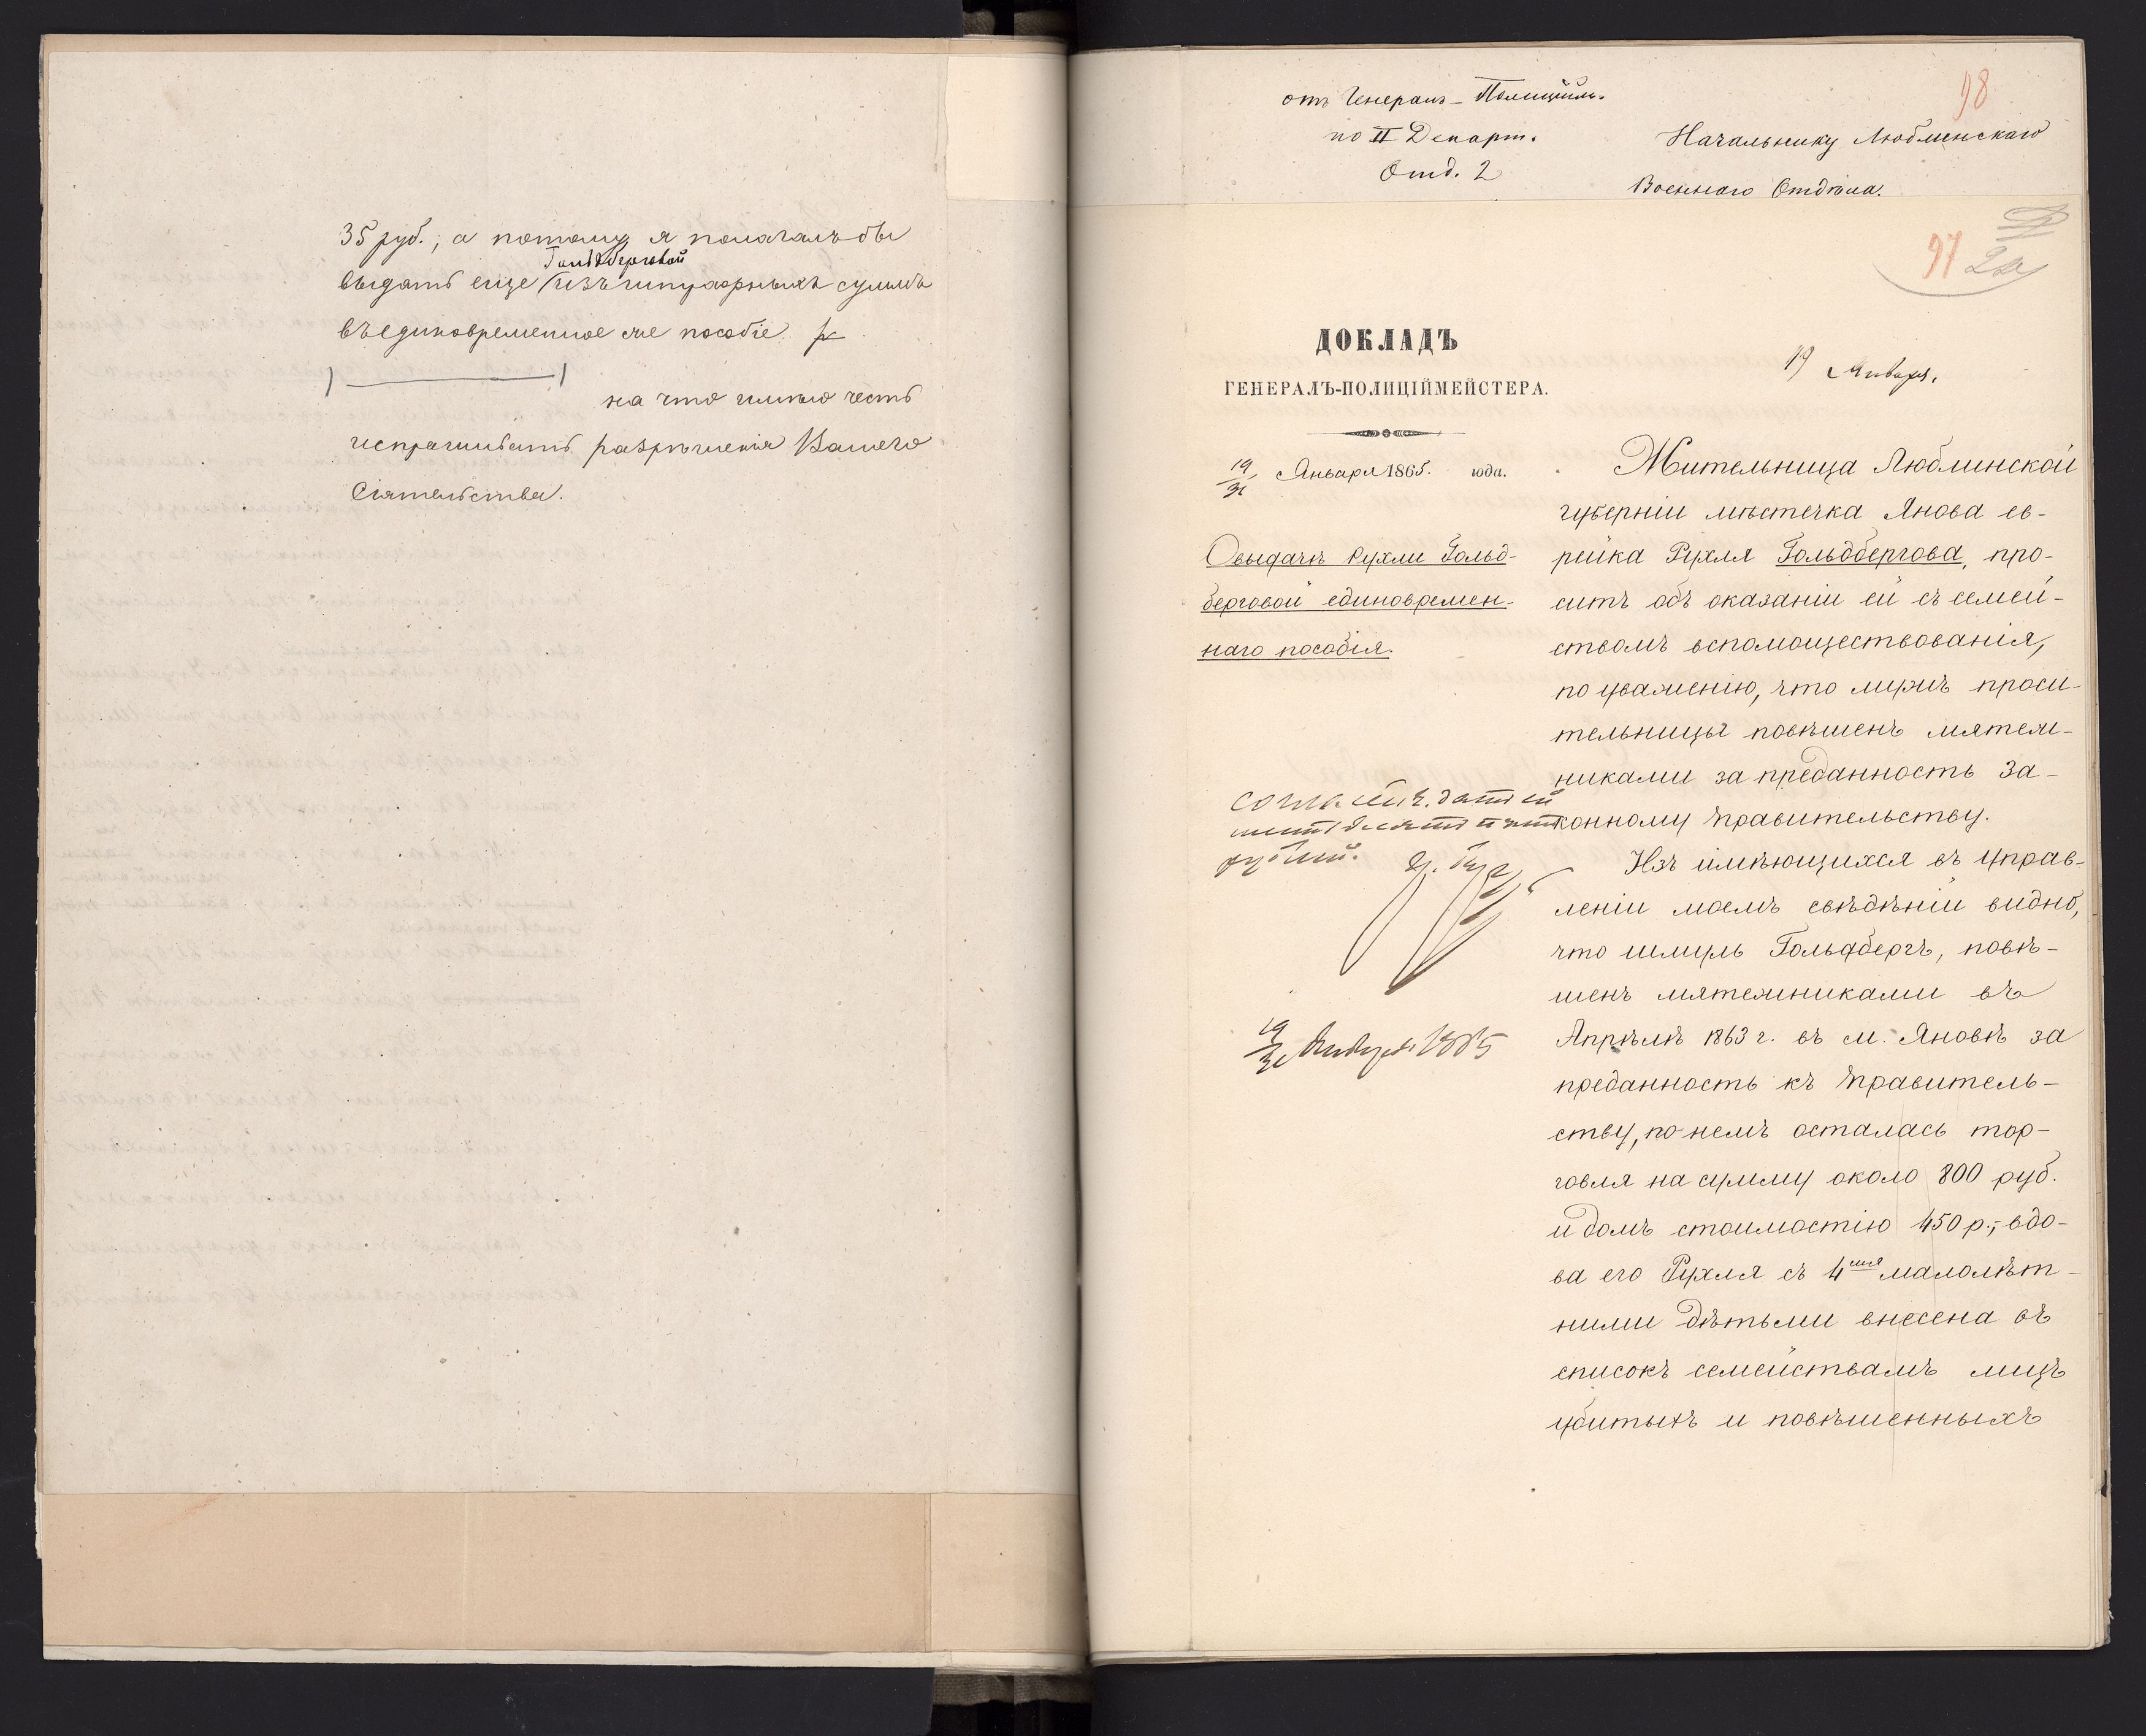 35 руб., а потому я полагалъ бы
Гольдберговой
выдать еще изъ штрафныхъ суммъ
въ единовременное же пособіе
на что имѣю честь
испрашивать разрѣшенія Вашего
Сіятельства.
98
отъ Генералъ-Полицій.
по II Департ.
Отд. 2
Начальнику Люблинскаго
Военнаго Отдѣла.
97
ДОКЛАДЪ
ГЕНЕРАЛЪ-ПОЛИЦІЙМЕЙСТЕРА.
19/31 Января 1865. года.
О выдачѣ Рухли Гольд-
берговой единовремен-
наго пособія.
19 Января.
Жительница Люблинской
губерніи мѣстечка Янова ев-
рейка Рухля Гольдбергова, про-
ситъ объ оказаніи ей съ семей-
ствомъ вспомоществованія,
по уваженію, что мужъ проси-
тельницы повѣшенъ мятеж-
никами за преданность За-
конному Правительству.
Изъ имѣющихся въ Управ-
леніи моемъ свѣдѣній видно,
что Шмуль Гольдбергъ, повѣ-
шенъ мятежниками въ
Апрѣлѣ 1863 г. въ м. Яновѣ за
преданность къ Правитель-
ству, по немъ осталась тор-
говля на сумму около 800 руб.
и домъ стоимостію 450 р.; вдо-
ва его Рухля съ 4мя малолѣт-
ними дѣтьми внесена въ
списокъ семействамъ лицъ
убитыхъ и повѣшенныхъ
дать ей
рублей.
19/31 Января 1865